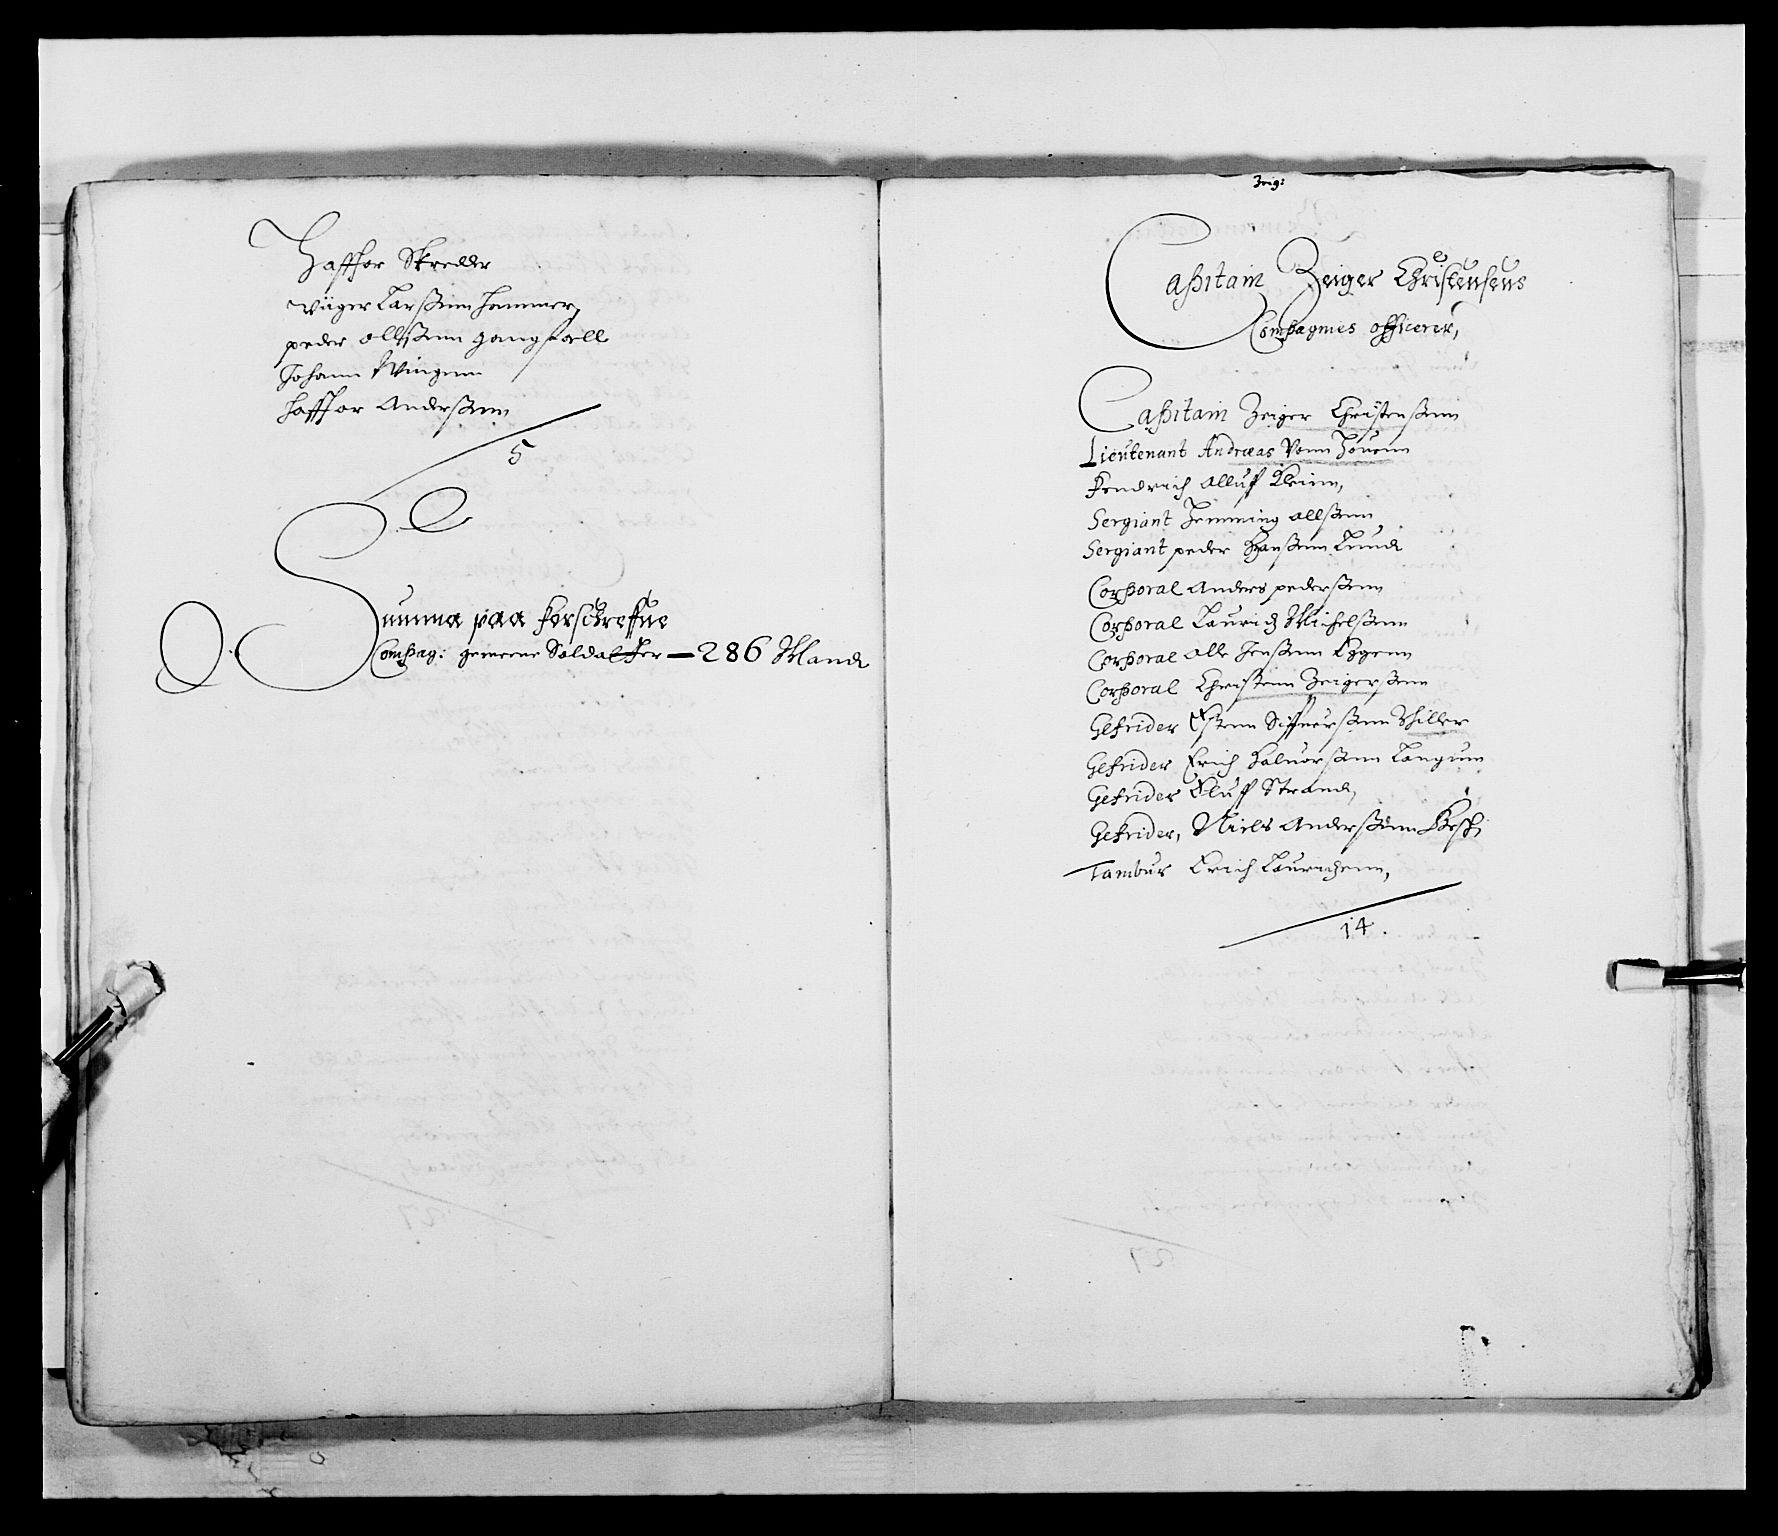 Haffuor Skreder
Wiiger Larssenn Hammer,
peder ollssenn gangstall
Johann Wingenn
Haffuor Anderssenn
5
Summa paa forschreffne
Compag: gemeene Soldatter — 286 Mand
Zeig:
Capitain Zeiger Christensens
Compagnies officerer,
Capitain Zeiger Christenssenn
Lieutenant Andreas vonn Høuenn
Fendrich olluff Kleinn,
Sergiant Hemming ollssenn
Sergiant peder Hanssenn Lund
Corporal Anders pederssenn
Corporal Lauridz Michelssenn
Corporal olle Jenssenn Eggenn
Corporal Christenn Zeigerssenn
Gefrider Estenn Siffuerssenn Schiller
Gefrider Erich Haluorssenn Langum
Gefrider Oluff Strand,
Gefrider, Niels Anderssenn
Tambur Erich Lauridzenn,
14.